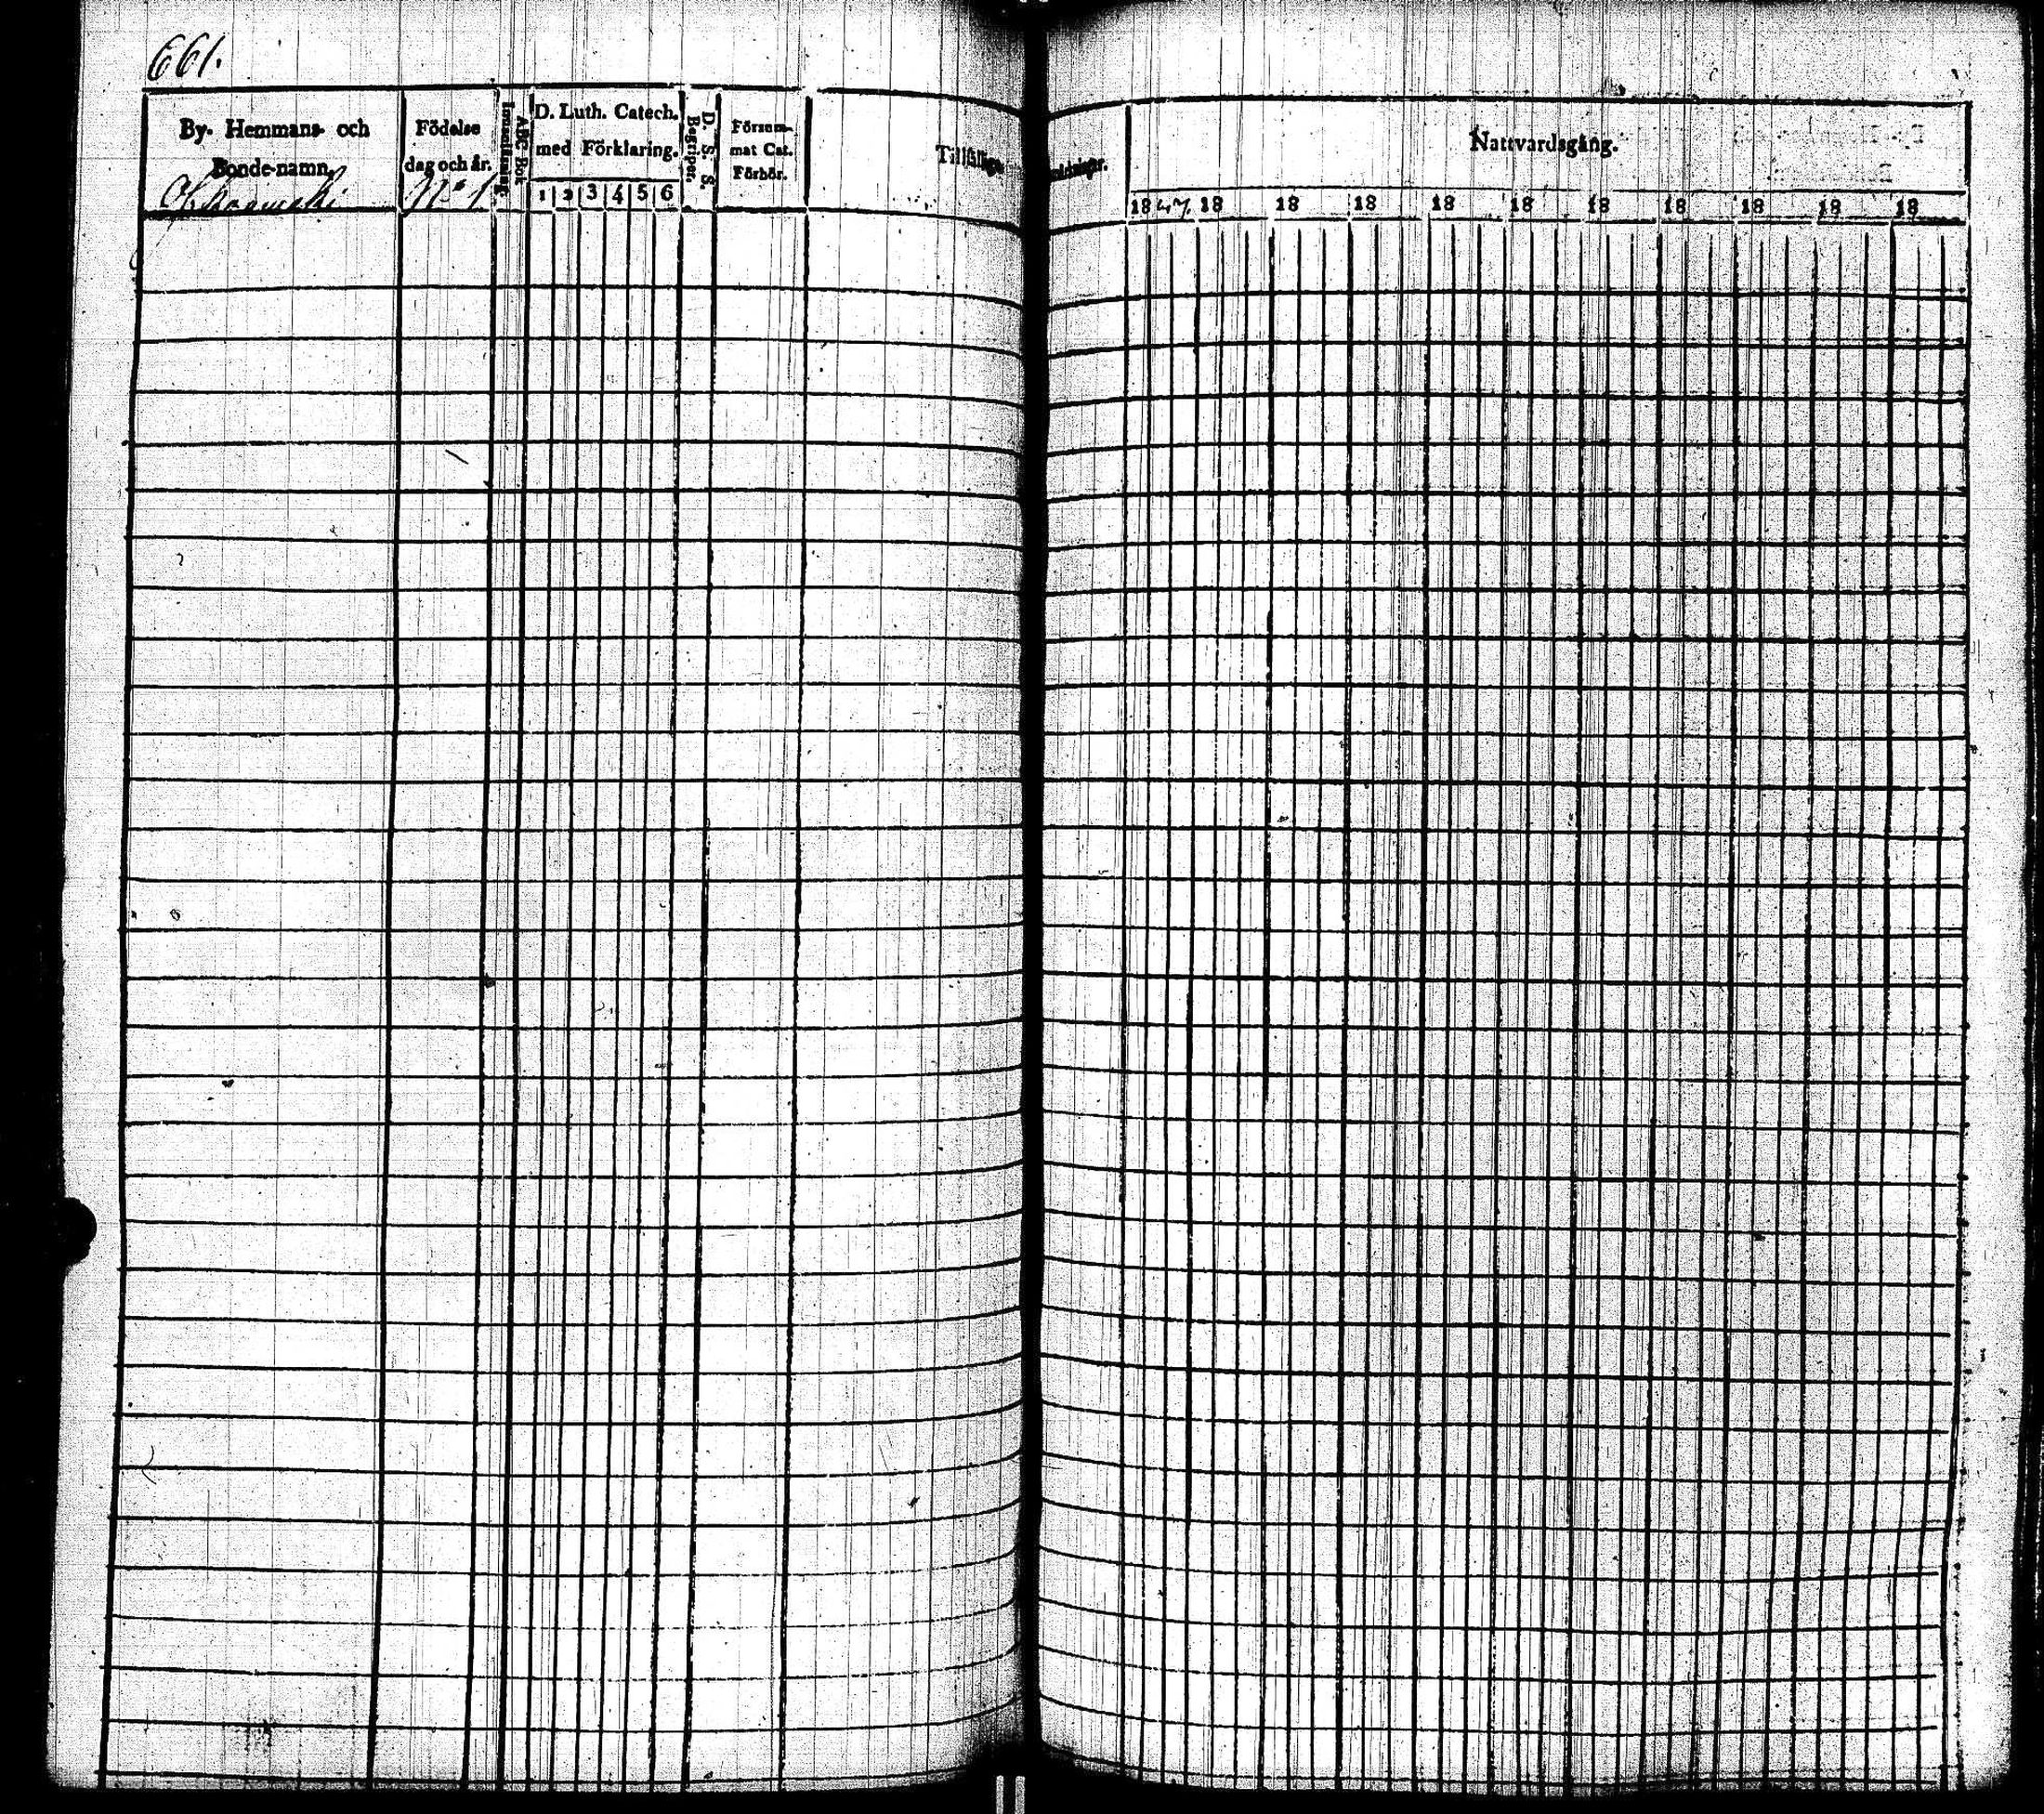 661.
By- Hemmans- och
Bonde-namn.
Födelse
dag och år.
No 1
Innanläsning
ABC Bok
D. Luth. Catech.
med Förklaring.
1 2 3 4 5 6
D. S. S.
Begriper.
Försum-
mat Cat.
Förhör.
Tillfällige
Nattvardsgång.
1847. 18 18 18 18 18 18 18 18 18 18